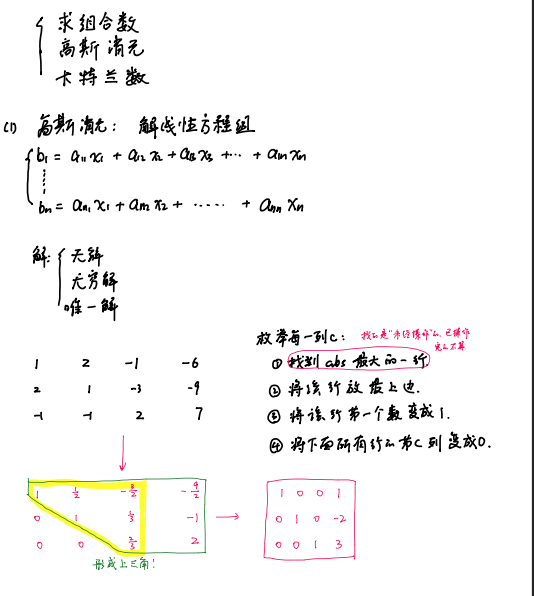 求组合数
高斯消元
卡特兰数
(1) 高斯消元: 解线性方程组
b₁ = a₁₁x₁ + a₁₂x₂ + a₁₃x₃ + ... + a₁ₙxₙ
bₙ = aₙ₁x₁ + aₙ₂x₂ + ...... + aₙₙxₙ
解: 无解
无穷解
唯一解
枚举每一列c: 找的是"未经操作"的,已操作
完的不算
① 找到abs最大的一行.
② 将该行放最上边.
③ 将该行第一个数变成1.
④ 将下面所有行的第c列变成0.
1 2 -1 -6
2 1 -3 -9
-1 -1 2 7
1 1/2 -3/2 -9/2
0 1 1/3 -1
0 0 2/3 2
形成上三角!
1 0 0 1
0 1 0 -2
0 0 1 3